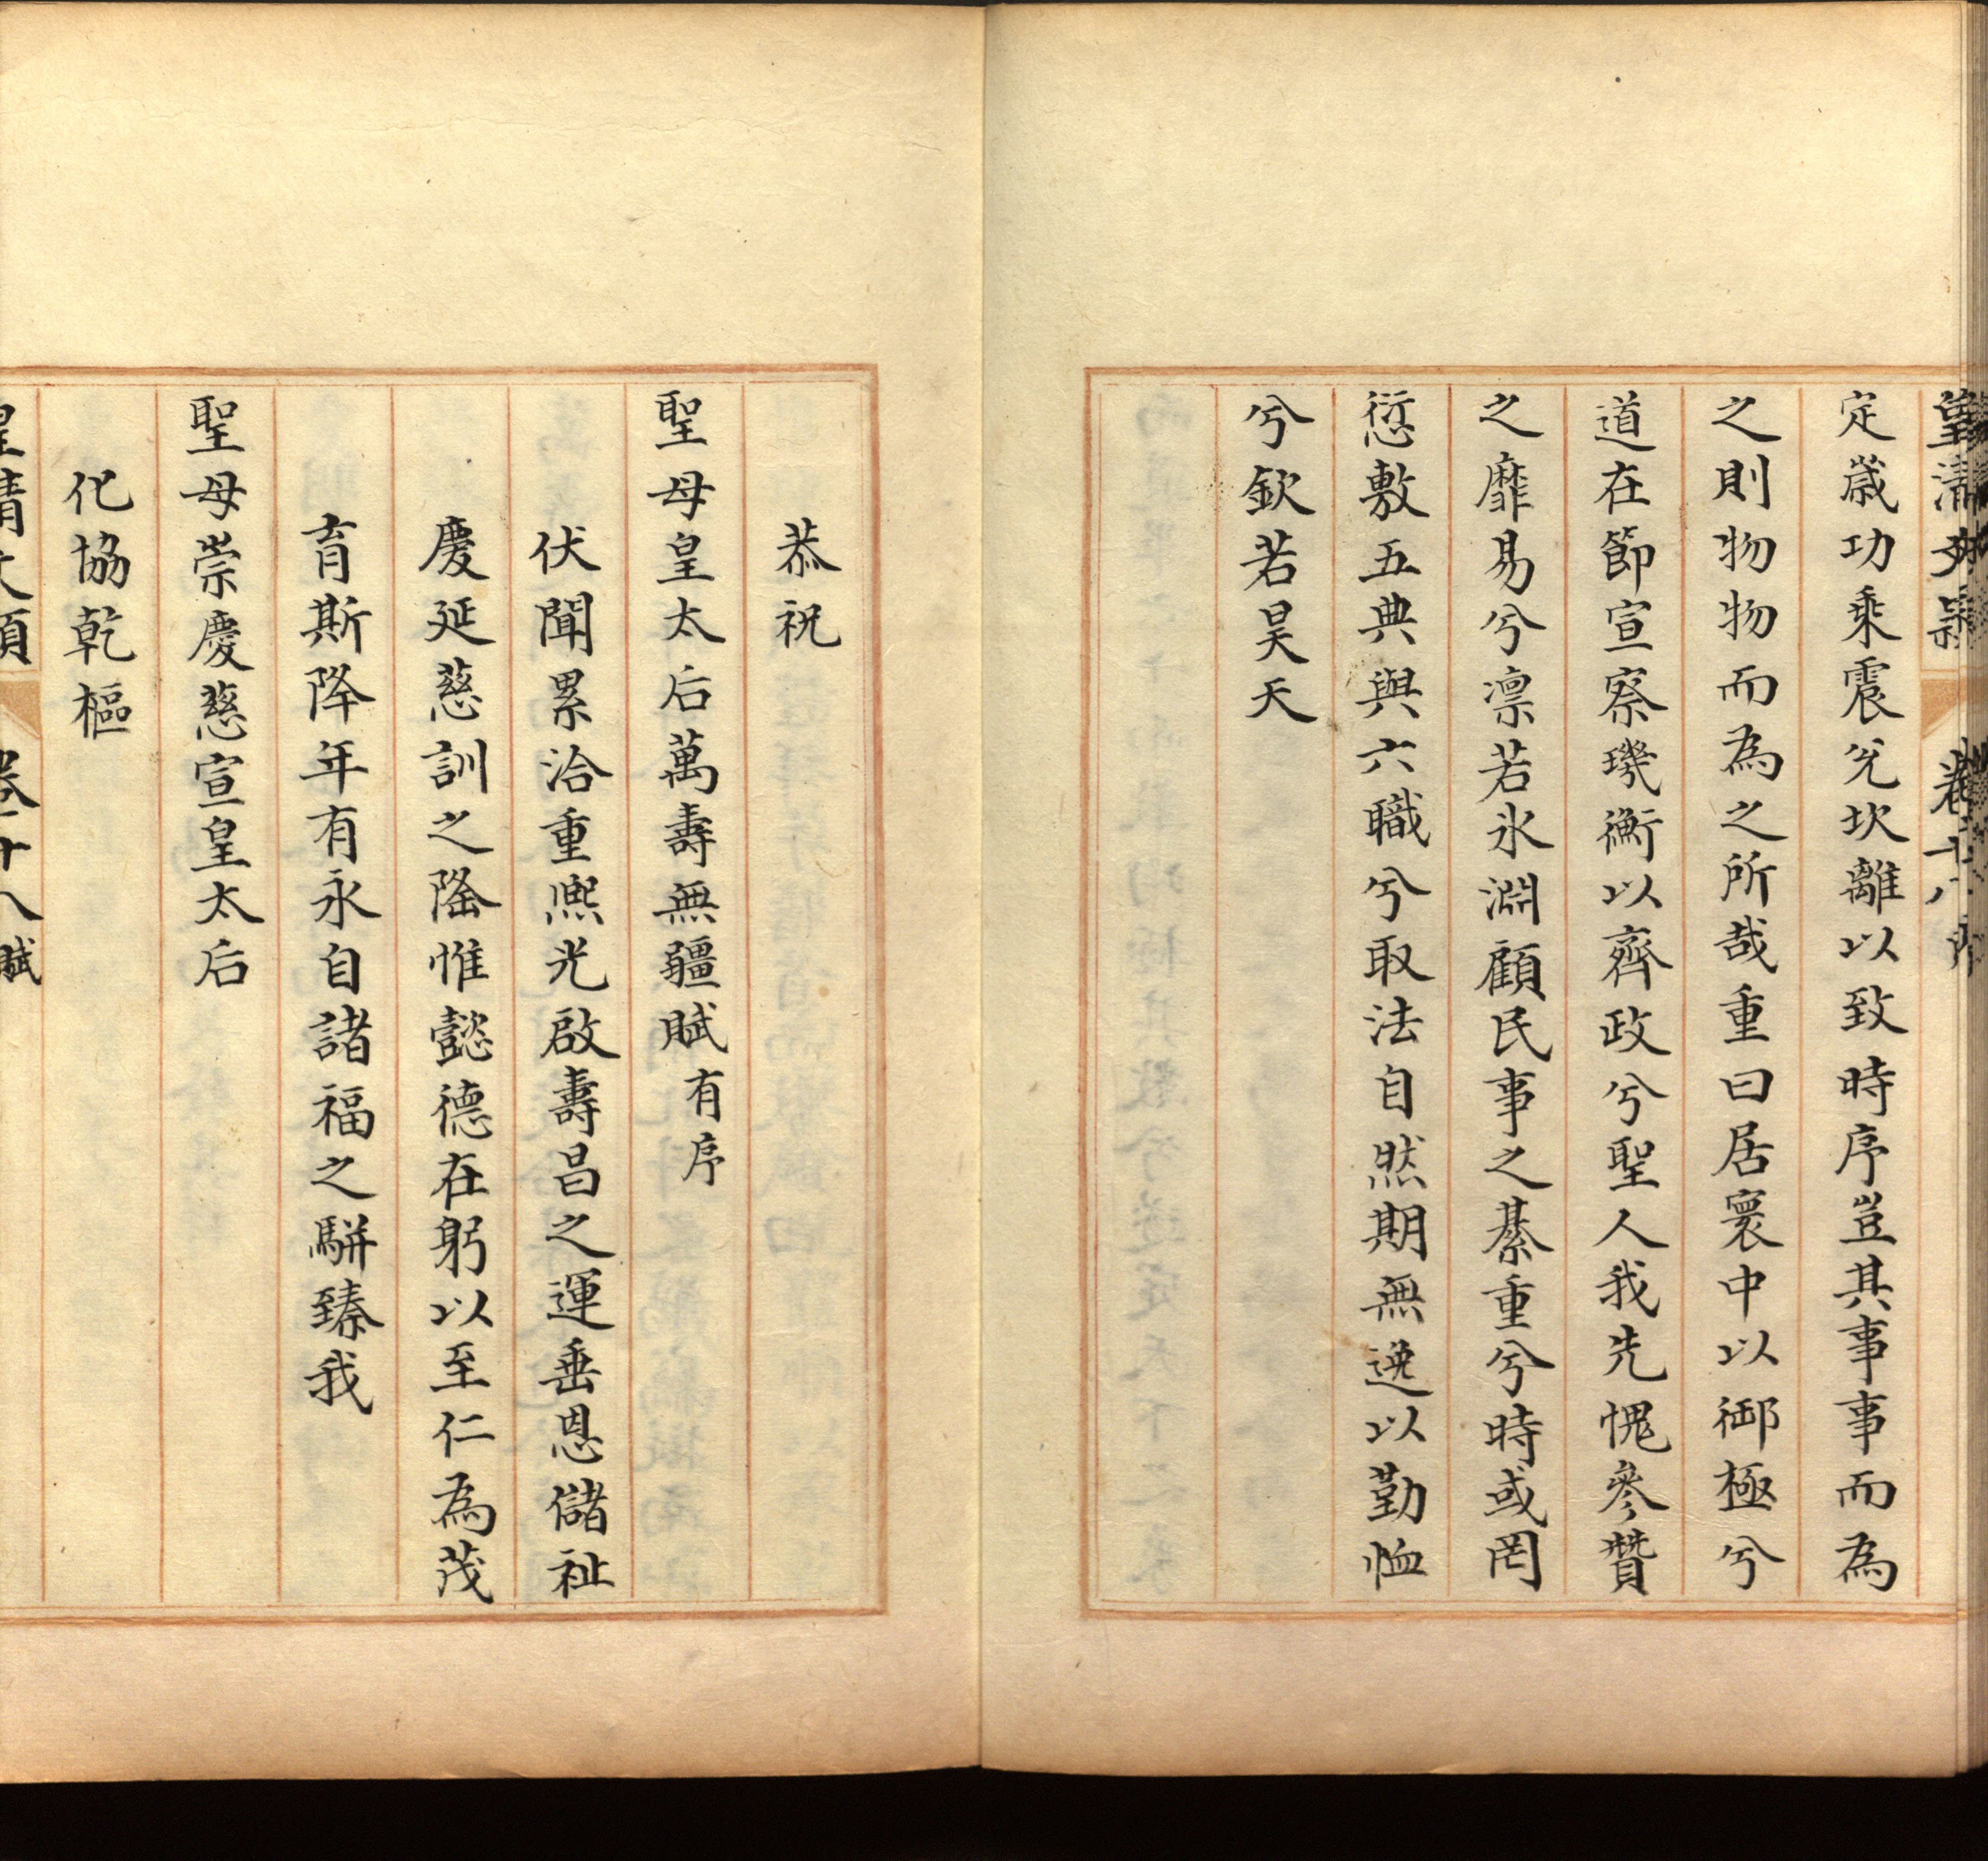 皇清文穎　卷十八
定歲功乘震兊坎離以致時序豈其事事而為
之則物物而為之所哉重曰居寰中以御極兮
道在節宣察璣衡以齊政兮聖人我先愧參贊
之靡易兮凛若氷淵顧民事之綦重兮時或罔
愆敷五典與六職兮取法自然期無逸以勤恤
兮欽若昊天
恭祝
聖母皇太后萬壽無疆賦有序
伏聞累洽重熈光啟壽昌之運垂恩儲祉
慶延慈訓之隆惟懿德在躬以至仁為茂
育斯降年有永自諸福之駢臻我
聖母崇慶慈宣皇太后
化協乾樞
皇清文穎　卷十八　賦